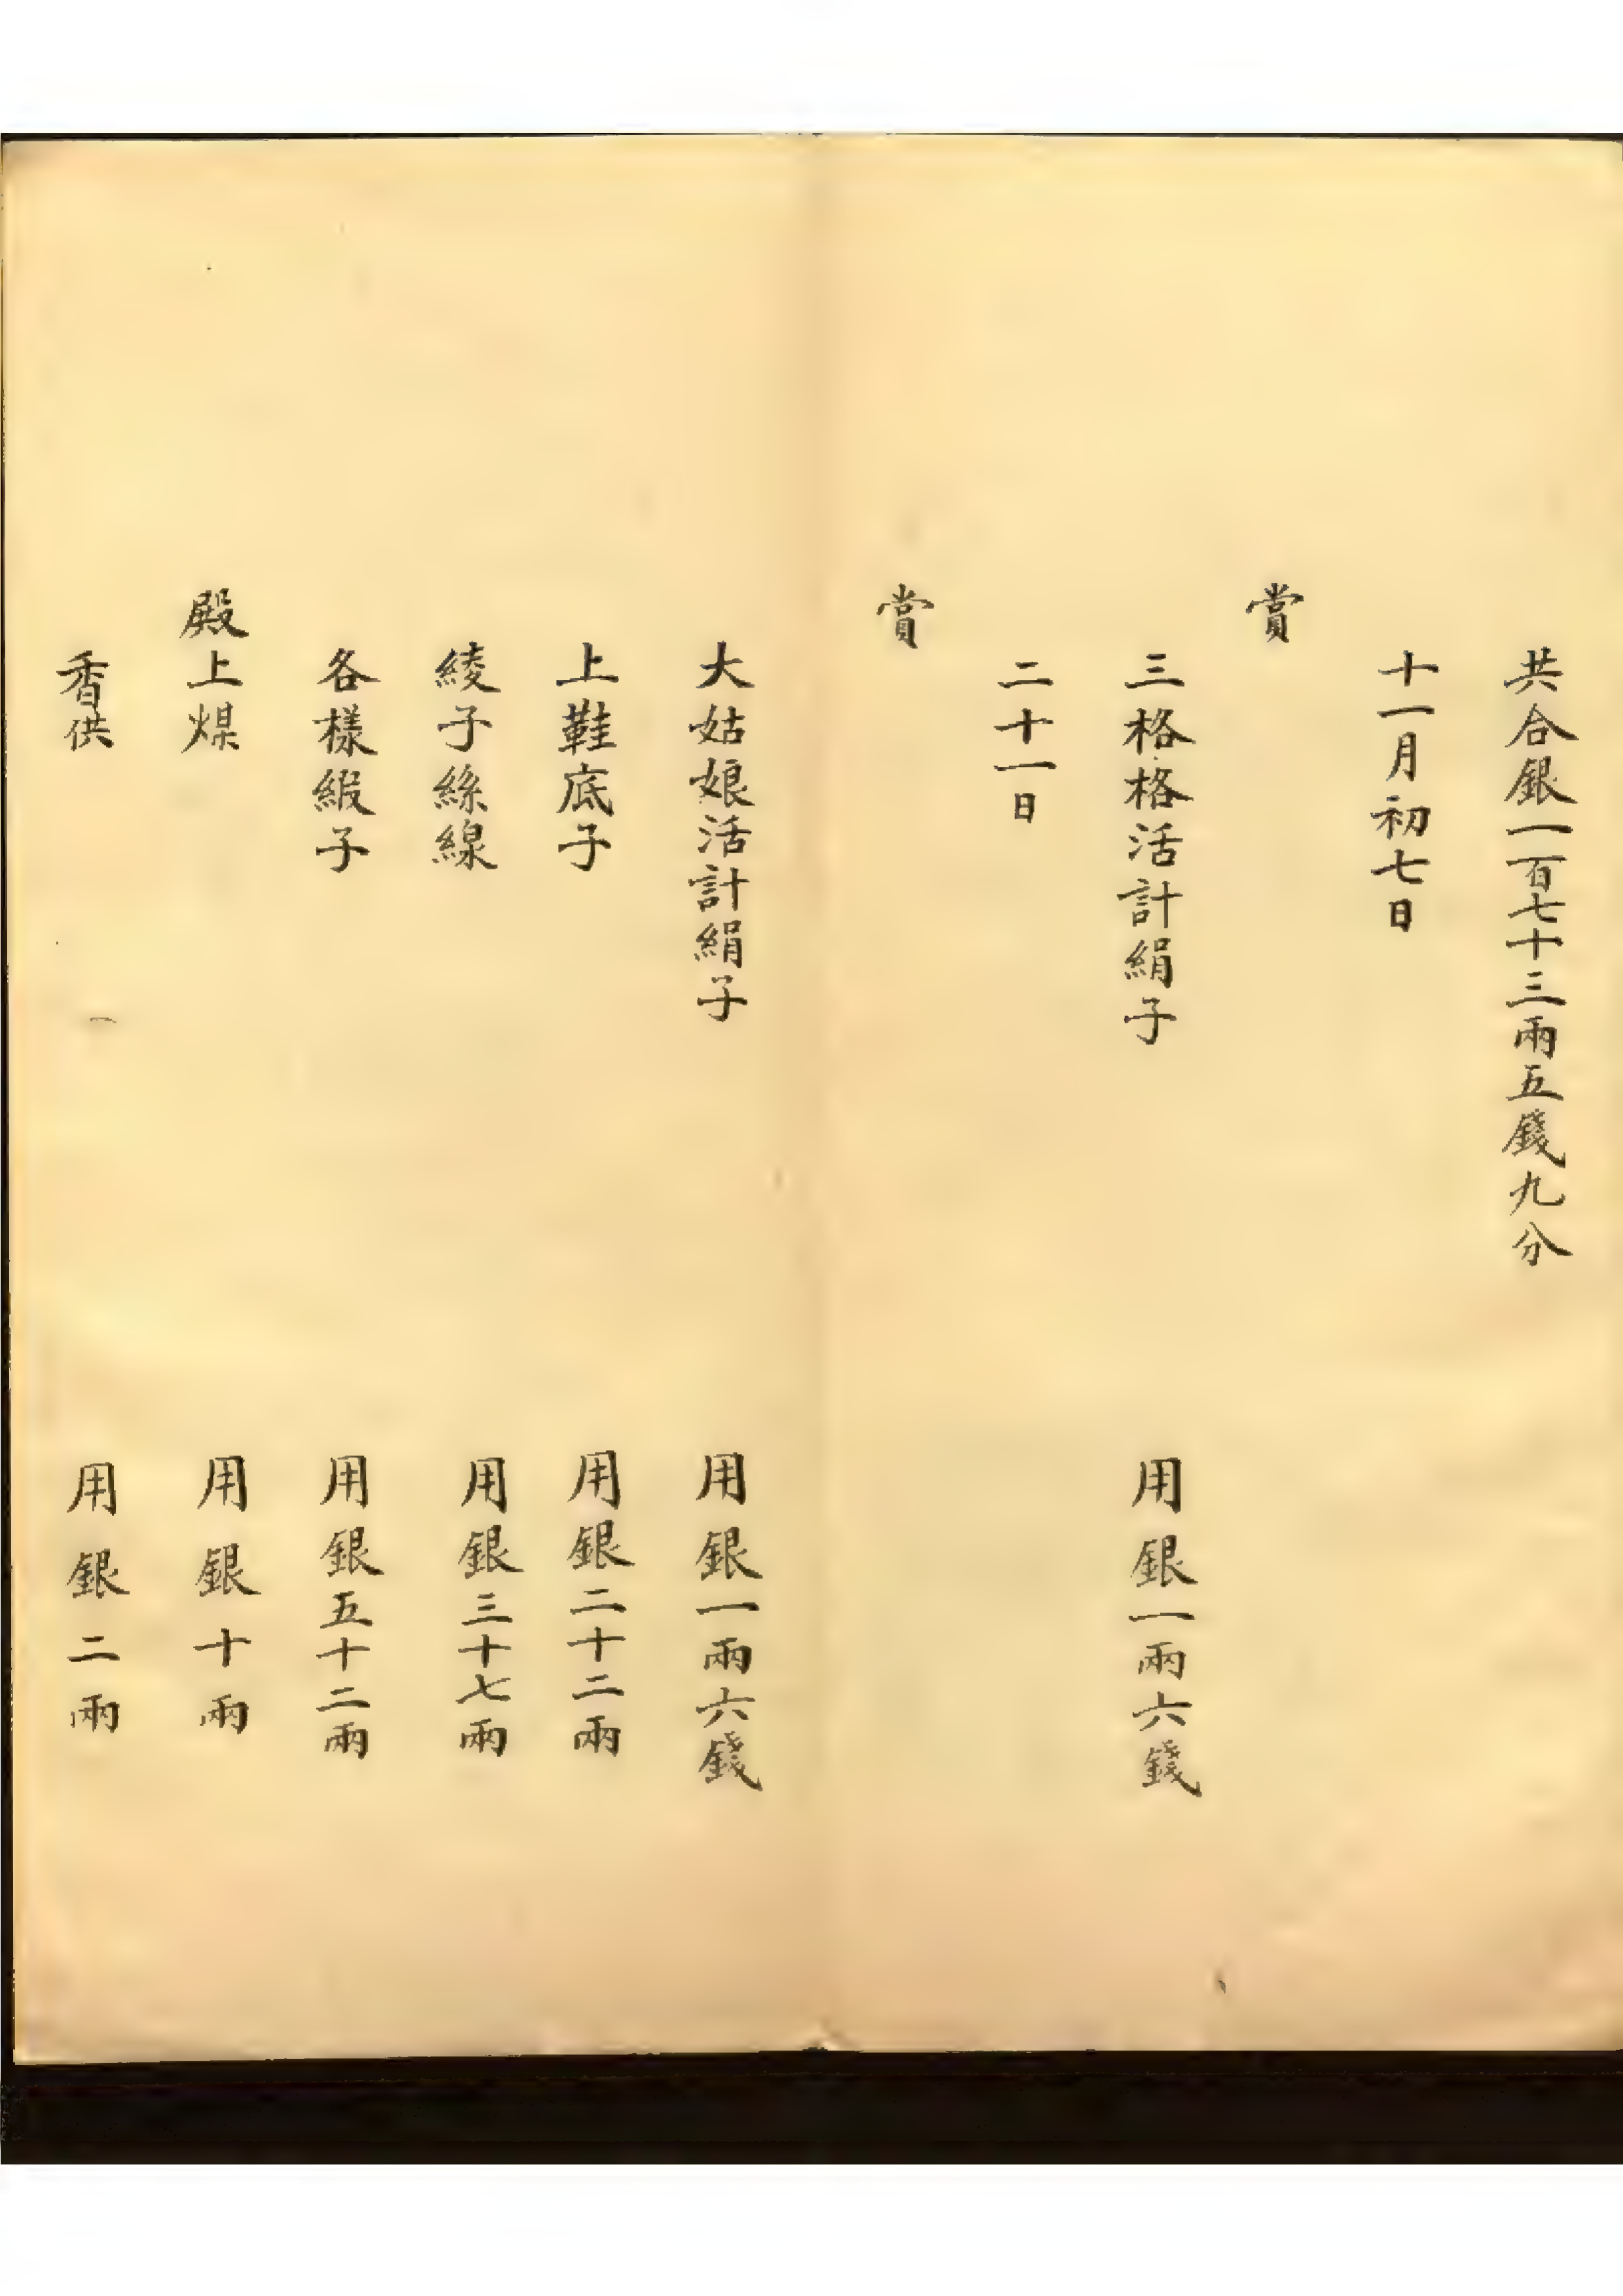 共合銀一百七十三兩五錢九分
十一月初七日
賞
三格格活計絹子 用銀一兩六錢
二十一日
賞
大姑娘活計絹子 用銀一兩六錢
上鞋底子 用銀二十二兩
綾子絲線 用銀三十七兩
各樣緞子 用銀五十二兩
殿上煤 用銀十兩
香供 用銀二兩